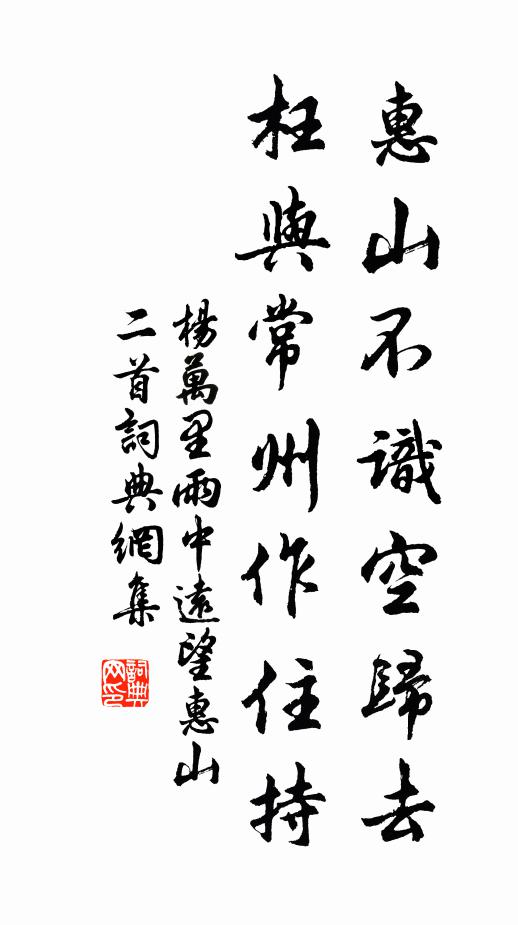 惠山不識空歸去
枉與常州作住持
楊萬里雨中遠望惠山
二首詞典網集
詞典網印